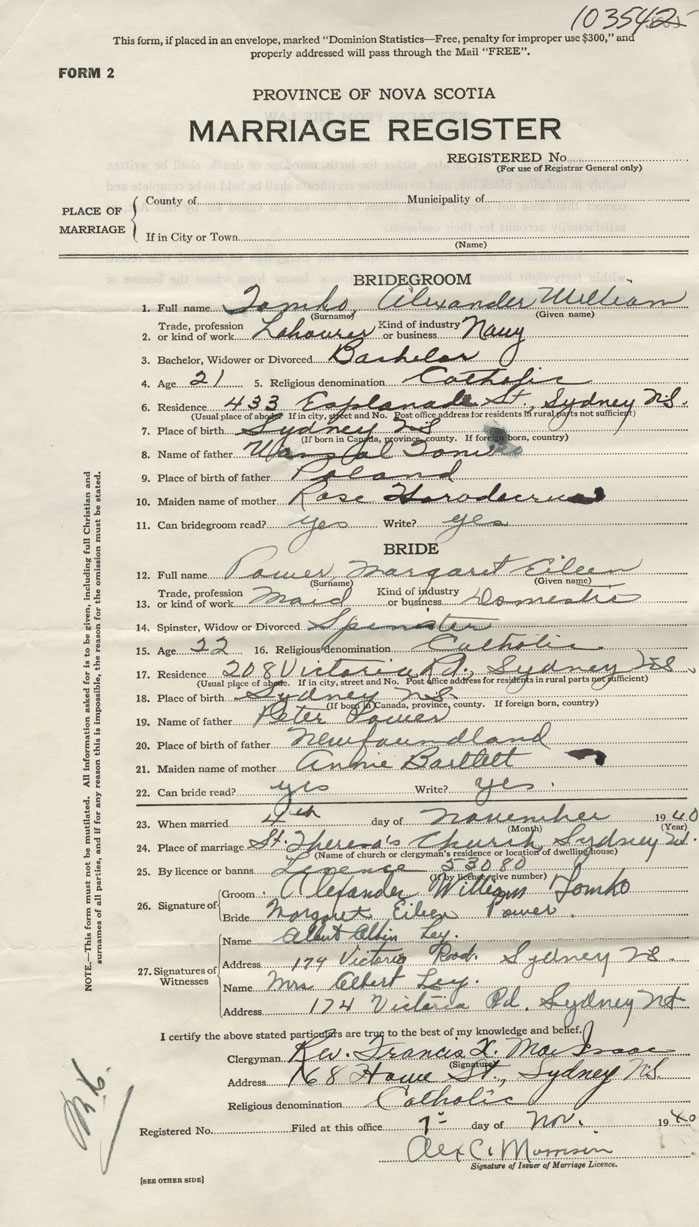 103542
This form, if placed in an envelope, marked "Dominion Statistics—Free, penalty for improper use $300," and
properly addressed will pass through the Mail "FREE".
FORM 2
PROVINCE OF NOVA SCOTIA
MARRIAGE REGISTER
REGISTERED No.
(For use of Registrar General only)
PLACE OF MARRIAGE
County of Municipality of
If in City or Town
(Name)
BRIDEGROOM
1. Full name Tomko, Alexander William
(Surname) (Given name)
2. Trade, profession or kind of work Labourer Kind of industry or business Navy
3. Bachelor, Widower or Divorced Bachelor
4. Age 21 5. Religious denomination Catholic
6. Residence 433 Esplanade St., Sydney N.S.
(Usual place of abode. If in city, street and No. Post office address for residents in rural parts not sufficient)
7. Place of birth Sydney N.S.
(If born in Canada, province, county. If foreign born, country)
8. Name of father Tomko
9. Place of birth of father Poland
10. Maiden name of mother Rose
11. Can bridegroom read? yes Write? yes
BRIDE
12. Full name Power, Margaret Eileen
(Surname) (Given name)
13. Trade, profession or kind of work Maid Kind of industry or business Domestic
14. Spinster, Widow or Divorced Spinster
15. Age 22 16. Religious denomination Catholic
17. Residence 208 Victoria Rd., Sydney N.S.
(Usual place of abode. If in city, street and No. Post office address for residents in rural parts not sufficient)
18. Place of birth Sydney N.S.
(If born in Canada, province, county. If foreign born, country)
19. Name of father Peter Power
20. Place of birth of father Newfoundland
21. Maiden name of mother Annie Bartlett
22. Can bride read? yes Write? yes.
23. When married 4th day of November 1940
(Month) (Year)
24. Place of marriage St. Theresa's Church, Sydney N.S.
(Name of church or clergyman's residence or location of dwelling house)
25. By licence or banns Licence 53080
(If by licence give number)
26. Signature of Groom Alexander William Tomko
Bride Margaret Eileen Power.
27. Signatures of Witnesses
Name Albert Ley.
Address 174 Victoria Road. Sydney N.S.
Name Mrs Albert Ley.
Address 174 Victoria Rd. Sydney N.S
I certify the above stated particulars are true to the best of my knowledge and belief.
Clergyman Rev. Francis X. MacIsaac
(Signature)
Address 168 Howe St., Sydney N.S.
Religious denomination Catholic
Registered No. Filed at this office 7 day of Nov. 1940
Alex C. Morrison
Signature of Issuer of Marriage Licence.
[SEE OTHER SIDE]
NOTE.—This form must not be mutilated. All information asked for is to be given, including full Christian and
surnames of all parties, and if for any reason this is impossible, the reason for the omission must be stated.